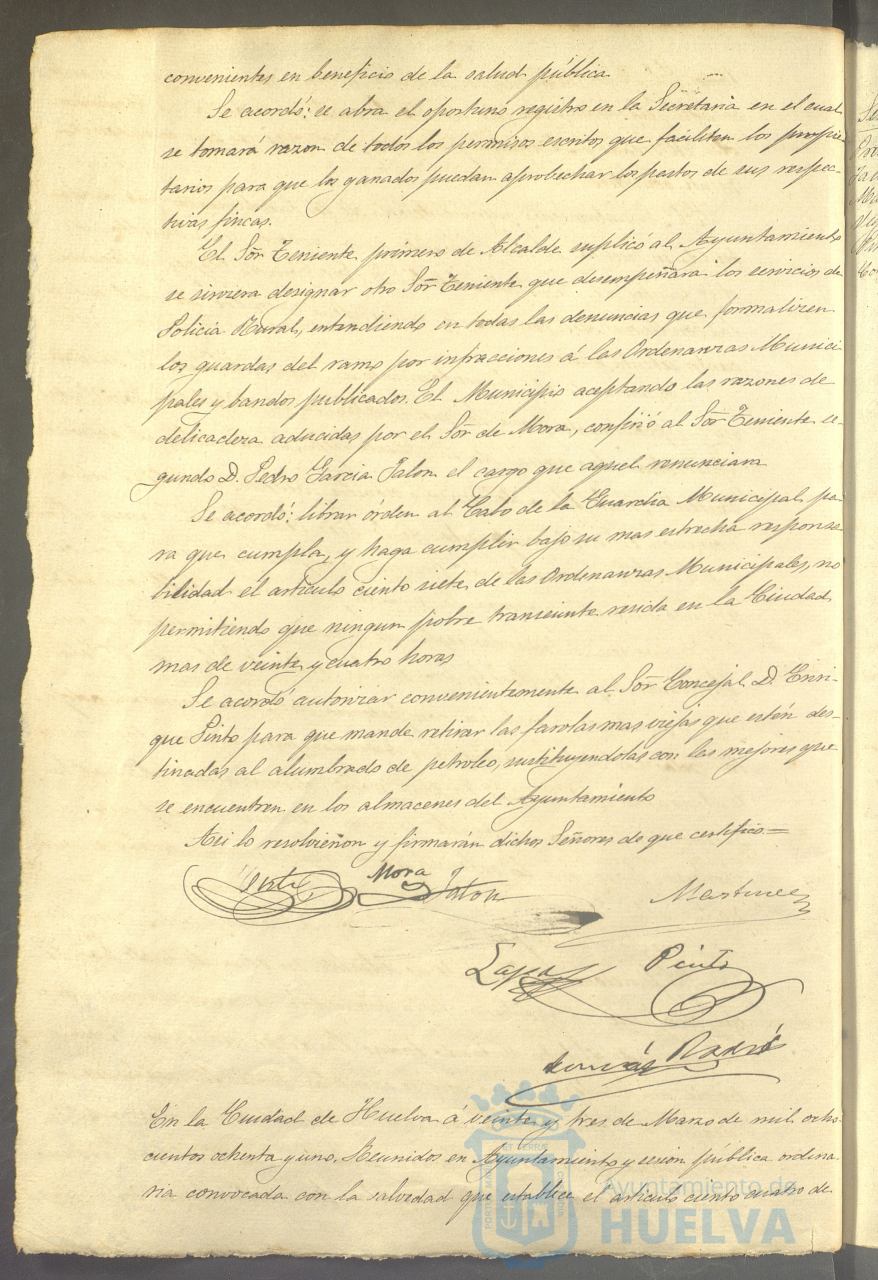 convenientes en beneficio de la salud pública
Se acordó: se abra el oportuno registro en la Secretaria en el cual
se tomará razon de todos los permisos escritos que faciliten los propie
tarios para que los ganados puedan aprobechar los pastos de sus respec-
tivas fincas.
El Sōr Teniente primero de Alcalde suplicó al Ayuntamiento
se sirviera designar otro Sōr Teniente que desempeñara los servicios de
Policia Rural, entendiendo en todas las denuncias que formalizen
los guardas del ramo por infracciones á las Ordenanzas Munici
pales y bandos publicados. El Municipio aceptando las razones de
delicadeza aducidas por el Sōr de Mora, confirió al Sōr Teniente se-
gundo D. Pedro Garcia Jalon el cargo que aquel renunciara
Se acordó: librar órden al Cabo de la Guardia Municipal pa-
ra que cumpla, y haga cumplir bajo su mas estrecha responsa
bilidad el articulo ciento siete de las Ordenanzas Municipales, no
permitiendo que ningun pobre transeunte resida en la Ciudad
mas de veinte y cuatro horas
Se acordó autorizar convenientemente al Sōr Concejal D. Enri-
que Pinto para que mande retirar las farolas mas viejas que estén des-
tinadas al alumbrado de petroleo, sustituyendolas con las mejores que
se encuentren en los almacenes del Ayuntamiento
Asi lo resolvieron y firmarán dichos Señores de que certifico=
Mora Jalon Martinez
Pinto
Tomás
En la Ciudad de Huelva á veinte y tres de Marzo de mil ocho
cientos ochenta y uno. Reunidos en Ayuntamiento y sesion pública ordena
ria convocada con la salvedad que establece el articulo ciento cuatro de
Ayuntamiento de
HUELVA